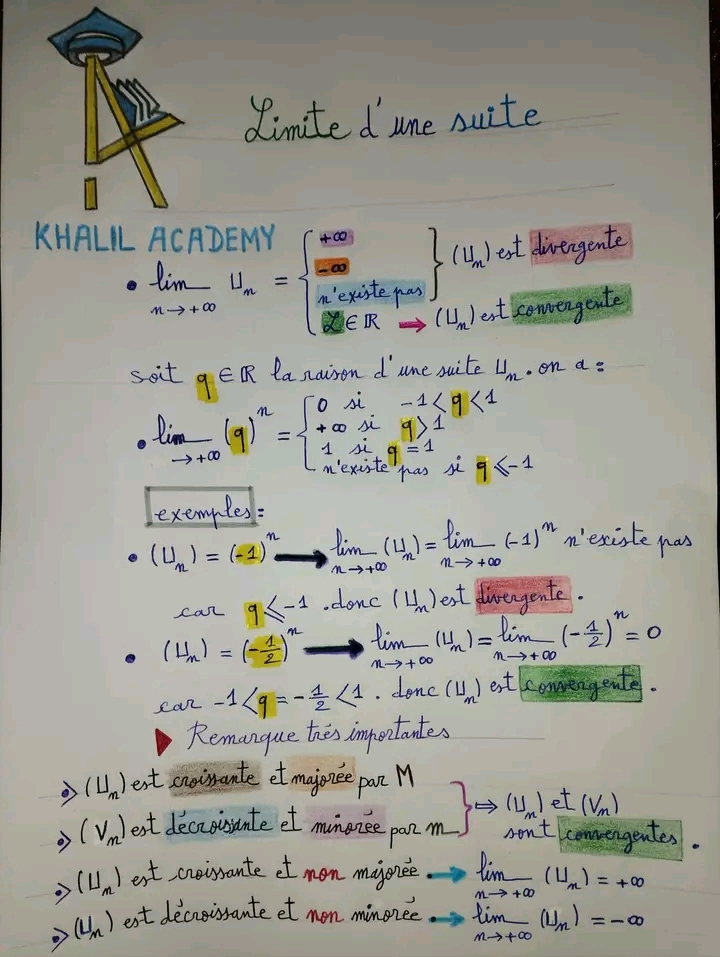 Limite d'une suite
KHALIL ACADEMY
• lim n→+∞ Un = { +∞
-∞
n'existe pas } (Un) est divergente
L ∈ ℝ → (Un) est convergente
soit q ∈ ℝ la raison d'une suite Un. on a :
• lim →+∞ (q)^n = { 0 si -1 < q < 1
+∞ si q > 1
1 si q = 1
n'existe pas si q ≤ -1
exemples :
• (Un) = (-1)^n → lim n→+∞ (Un) = lim n→+∞ (-1)^n n'existe pas
car q ≤ -1 . donc (Un) est divergente .
• (Un) = (-1/2)^n → lim n→+∞ (Un) = lim n→+∞ (-1/2)^n = 0
car -1 < q = -1/2 < 1 . donc (Un) est convergente .
Remarque trés importantes
(Un) est croissante et majorée par M
(Vn) est décroissante et minorée par m } ⇒ (Un) et (Vn)
sont convergentes .
(Un) est croissante et non majorée → lim n→+∞ (Un) = +∞
(Un) est décroissante et non minorée → lim n→+∞ (Un) = -∞